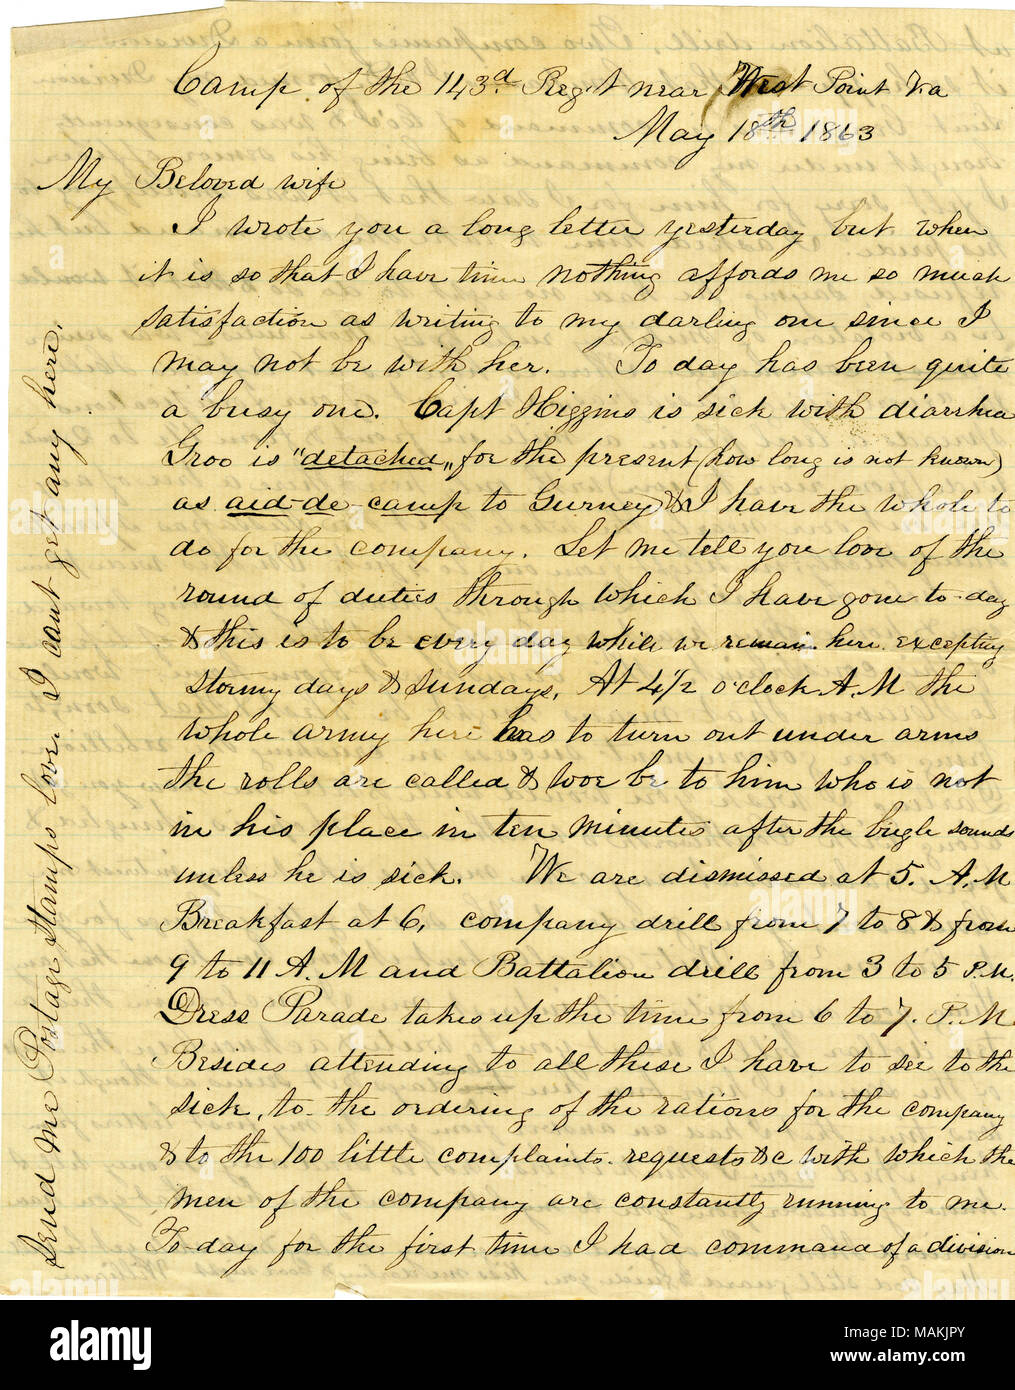 Camp of the 143.d Reg.t near West Point Va
May 18th 1863
My Beloved wife
I wrote you a long letter yesterday but when
it is so that I have time nothing affords me so much
satisfaction as writing to my darling one since I
may not be with her. To day has been quite
a busy one. Capt Higgins is sick with diarrhea
Groo is "detached" for the present (how long is not known)
as aid-de-camp to Gurney & I have the whole to
do for the company. Let me tell you love of the
round of duties through which I have gone to-day
& this is to be every day while we remain here excepting
stormy days & sundays. At 4 1/2 o'clock A.M the
whole army here has to turn out under arms
the rolls are called & woe be to him who is not
in his place in ten minutes after the bugle sounds
unless he is sick. We are dismissed at 5. A.M
Breakfast at 6, company drill from 7 to 8 & from
9 to 11 A.M and Battalion drill from 3 to 5 P.M.
Dress Parade takes up the time from 6 to 7. P.M
Besides attending to all these I have to see to the
sick, to the ordering of the rations for the company
& to the 100 little complaints. requests &c with which the
men of the company are constantly running to me.
To-day for the first time I had command of a division
Send me Postage Stamps love. I cant get any here.
alamy
Image ID: MAKJPY
www.alamy.com